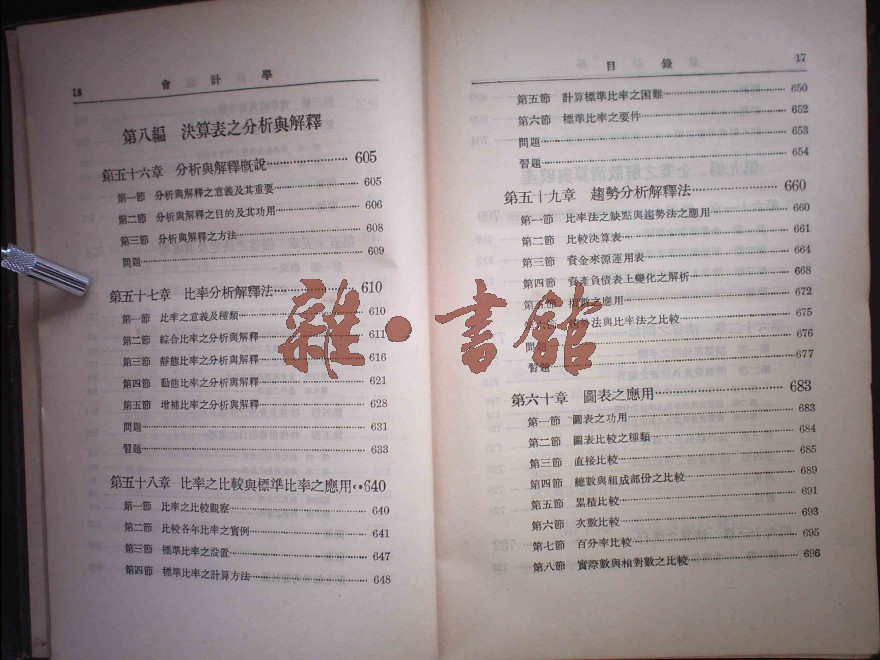 18 會計學
第八編 決算表之分析與解釋
第五十六章 分析與解釋概說 605
第一節 分析與解釋之意義及其重要 605
第二節 分析與解釋之目的及其功用 606
第三節 分析與解釋之方法 608
問題 609
第五十七章 比率分析解釋法 610
第一節 比率之意義及種類 610
第二節 綜合比率之分析與解釋 611
第三節 靜態比率之分析與解釋 616
第四節 動態比率之分析與解釋 621
第五節 增補比率之分析與解釋 628
問題 631
習題 633
第五十八章 比率之比較與標準比率之應用 640
第一節 比率之比較觀察 640
第二節 比較各年比率之實例 641
第三節 標準比率之設置 647
第四節 標準比率之計算方法 648
目錄 17
第五節 計算標準比率之困難 650
第六節 標準比率之要件 652
問題 653
習題 654
第五十九章 趨勢分析解釋法 660
第一節 比率法之缺點與趨勢法之應用 660
第二節 比較決算表 661
第三節 資金來源運用表 664
第四節 資產負債表上變化之解析 668
第五節 指數之應用 672
第六節 趨勢法與比率法之比較 675
問題 676
習題 677
第六十章 圖表之應用 683
第一節 圖表之功用 683
第二節 圖表比較之種類 684
第三節 直接比較 685
第四節 總數與組成部份之比較 689
第五節 累積比較 691
第六節 次數比較 693
第七節 百分率比較 695
第八節 實際數與相對數之比較 696
雜·書館